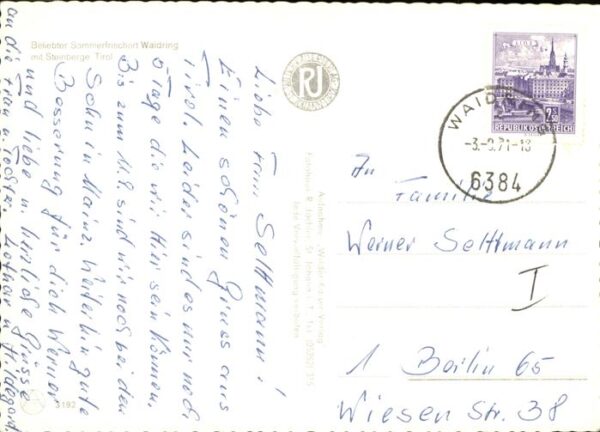 Beliebter Sommerfrischort Waidring
mit Steinberge, Tirol
Liebe Fam. Selttmann!
Einen schönen Gruss aus
Tirol. Leider sind es nur noch
Tage die wir hier sein können.
Bis zum 11.9. sind wir noch bei den
Sohn in Mainz. Weiterhin gute
Besserung für dich Werner
und liebe u. herzliche Grüsse
an die Frau u. Tochter Lothar u. Hildegard
RJ
3192
WAIDRING
-3.-9.71-18
6384
2S
REPUBLIK ÖSTERREICH
An
Familie
Werner Selttmann
I
1 Berlin 65
Wiesen Str. 38